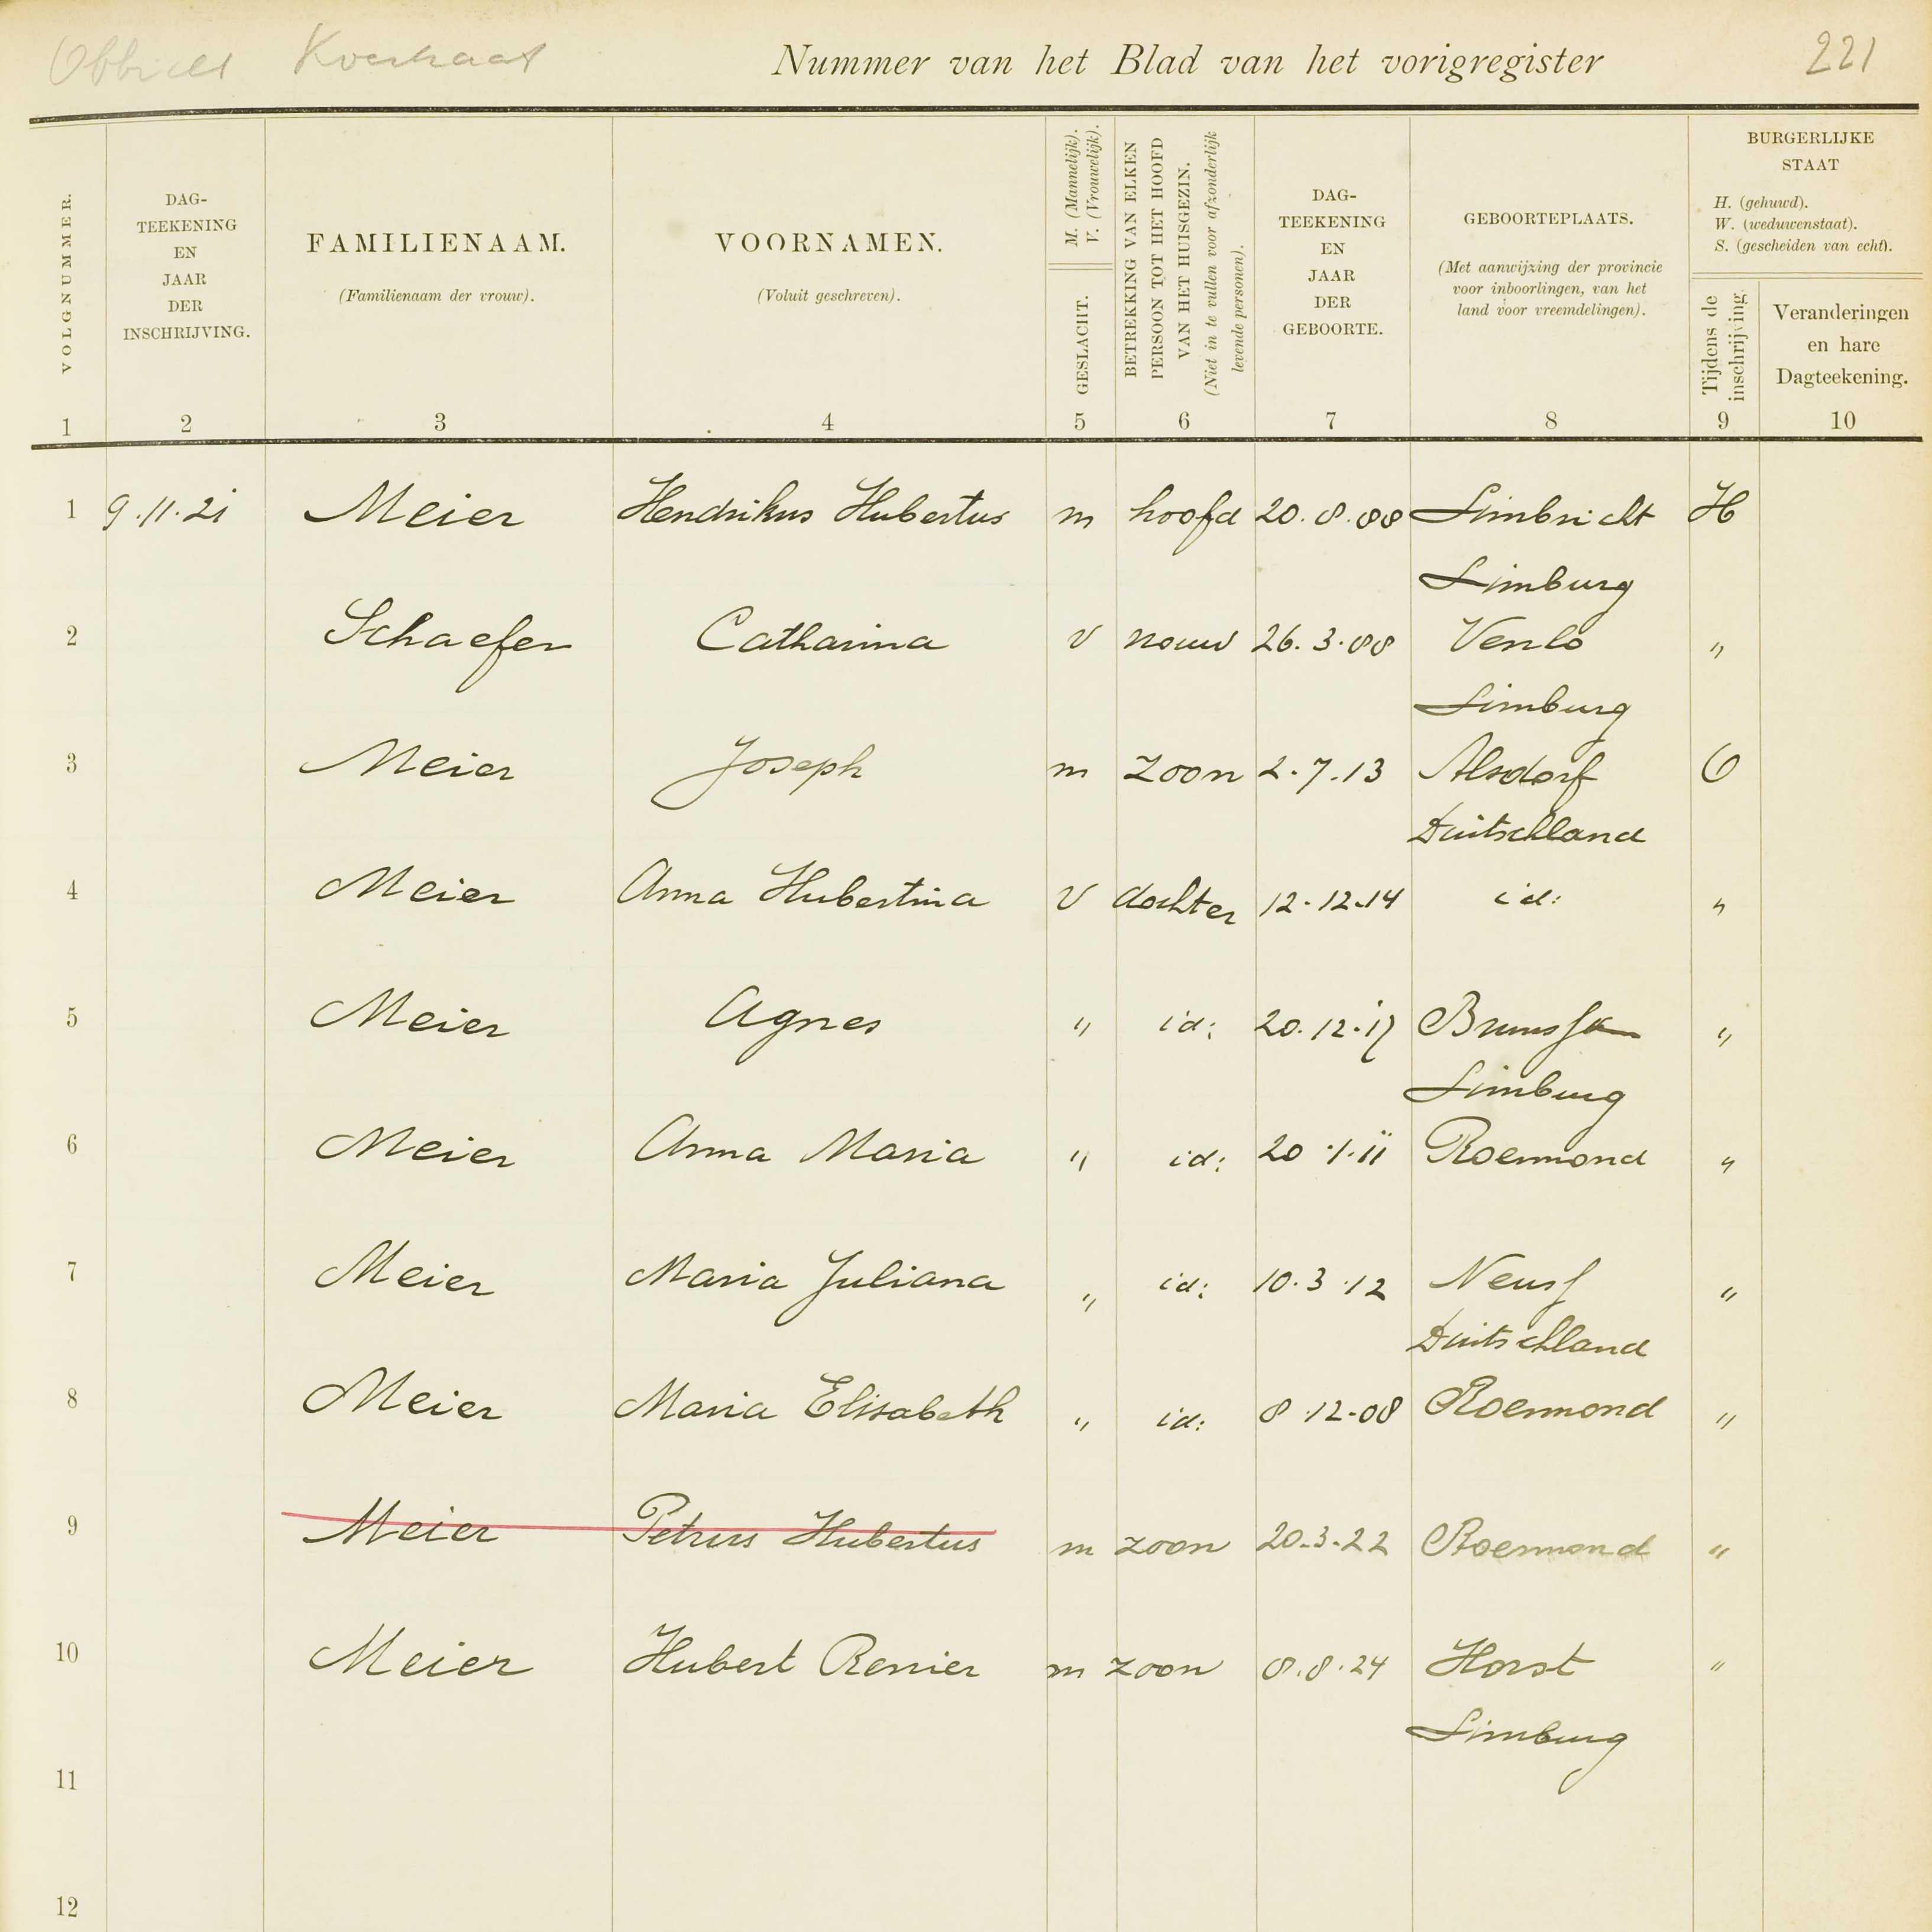 Nummer van het Blad van het vorigregister 221
VOLGNUMMER.
DAG-
TEEKENING
EN
JAAR
DER
INSCHRIJVING.
FAMILIENAAM.
(Familienaam der vrouw).
VOORNAMEN.
(Voluit geschreven).
M. (Mannelijk).
V. (Vrouwelijk).
GESLACHT.
BETREKKING VAN ELKEN
PERSOON TOT HET HOOFD
VAN HET HUISGEZIN.
(Niet in te vullen voor afzonderlijk
levende personen).
DAG-
TEEKENING
EN
JAAR
DER
GEBOORTE.
GEBOORTEPLAATS.
(Met aanwijzing der provincie
voor inboorlingen, van het
land voor vreemdelingen).
BURGERLIJKE
STAAT
H. (gehuwd).
W. (weduwenstaat).
S. (gescheiden van echt).
Tijdens de
inschrijving.
Veranderingen
en hare
Dagteekening.
1 2 3 4 5 6 7 8 9 10
1 9.11.21 Meier Hendrikus Hubertus m hoofd 20.8.88 Limbricht H
Limburg
2 Schaefer Catharina v vrouw 26.3.88 Venlo "
Limburg
3 Meier Joseph m zoon 2.7.13 Alsdorf O
Duitschland
4 Meier Anna Hubertina v dochter 12.12.14 id: "
5 Meier Agnes " id: 20.12.17 "
Limburg
6 Meier Anna Maria " id: 20.1.11 Roermond "
7 Meier Maria Juliana " id: 10.3.12 Neusz "
Duitschland
8 Meier Maria Elisabeth " id: 8.12.08 Roermond "
9 Meier Petrus Hubertus m zoon 20.3.22 Roermond "
10 Meier Hubert Renier m zoon 8.8.24 Horst "
Limburg
11
12